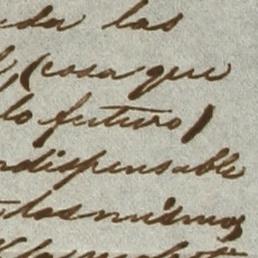 da las
(cosa que
lo futuro)
ndispensable
los mismos